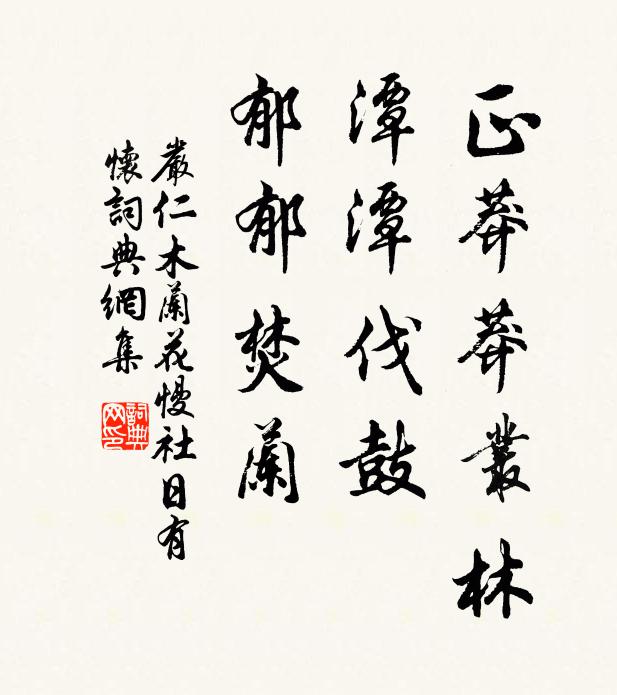 正莽莽叢林
潭潭伐鼓
郁郁焚蘭
嚴仁木蘭花慢社日有
懷詞典網集
詞典
网印